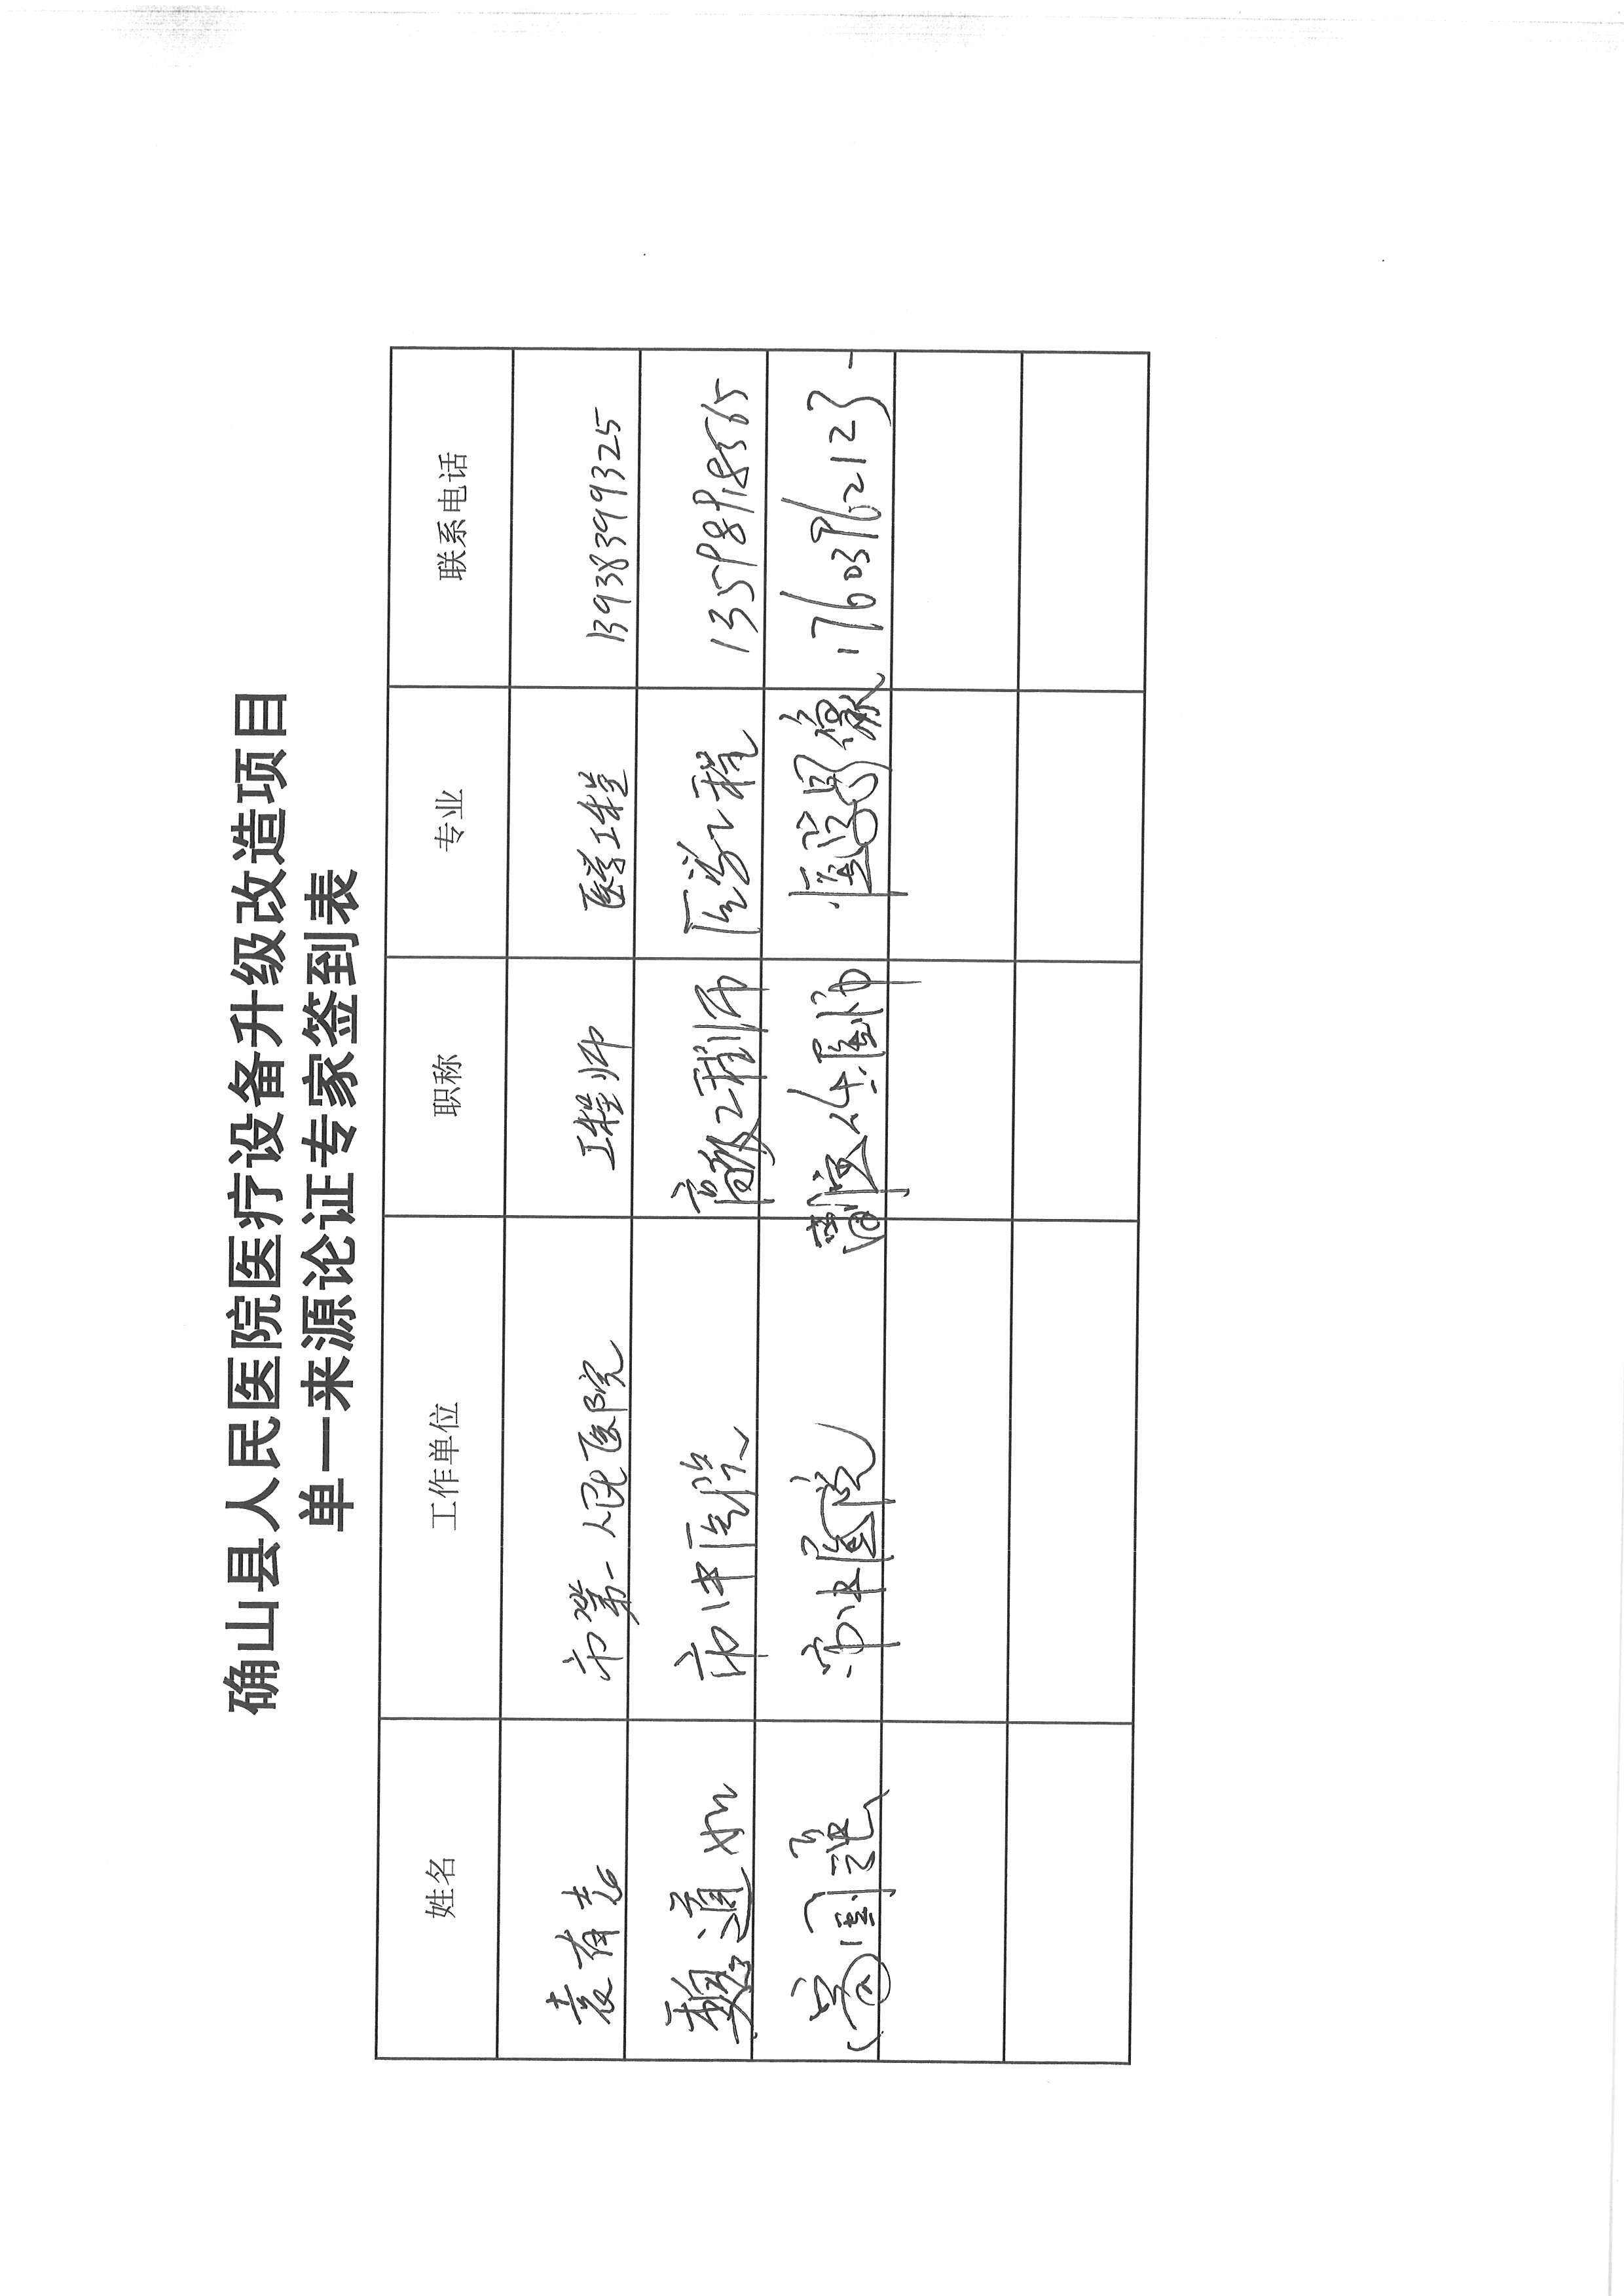 确山县人民医院医疗设备升级改造项目
单一来源论证专家签到表
姓名 工作单位 职称 专业 联系电话
袁有志 市第一人民医院 工程师 医学工程 13938399325
魏道如 市中医院 高级工程师 医学工程 13598918565
国强 市中医院 副主任医师 医学影像 17603962123